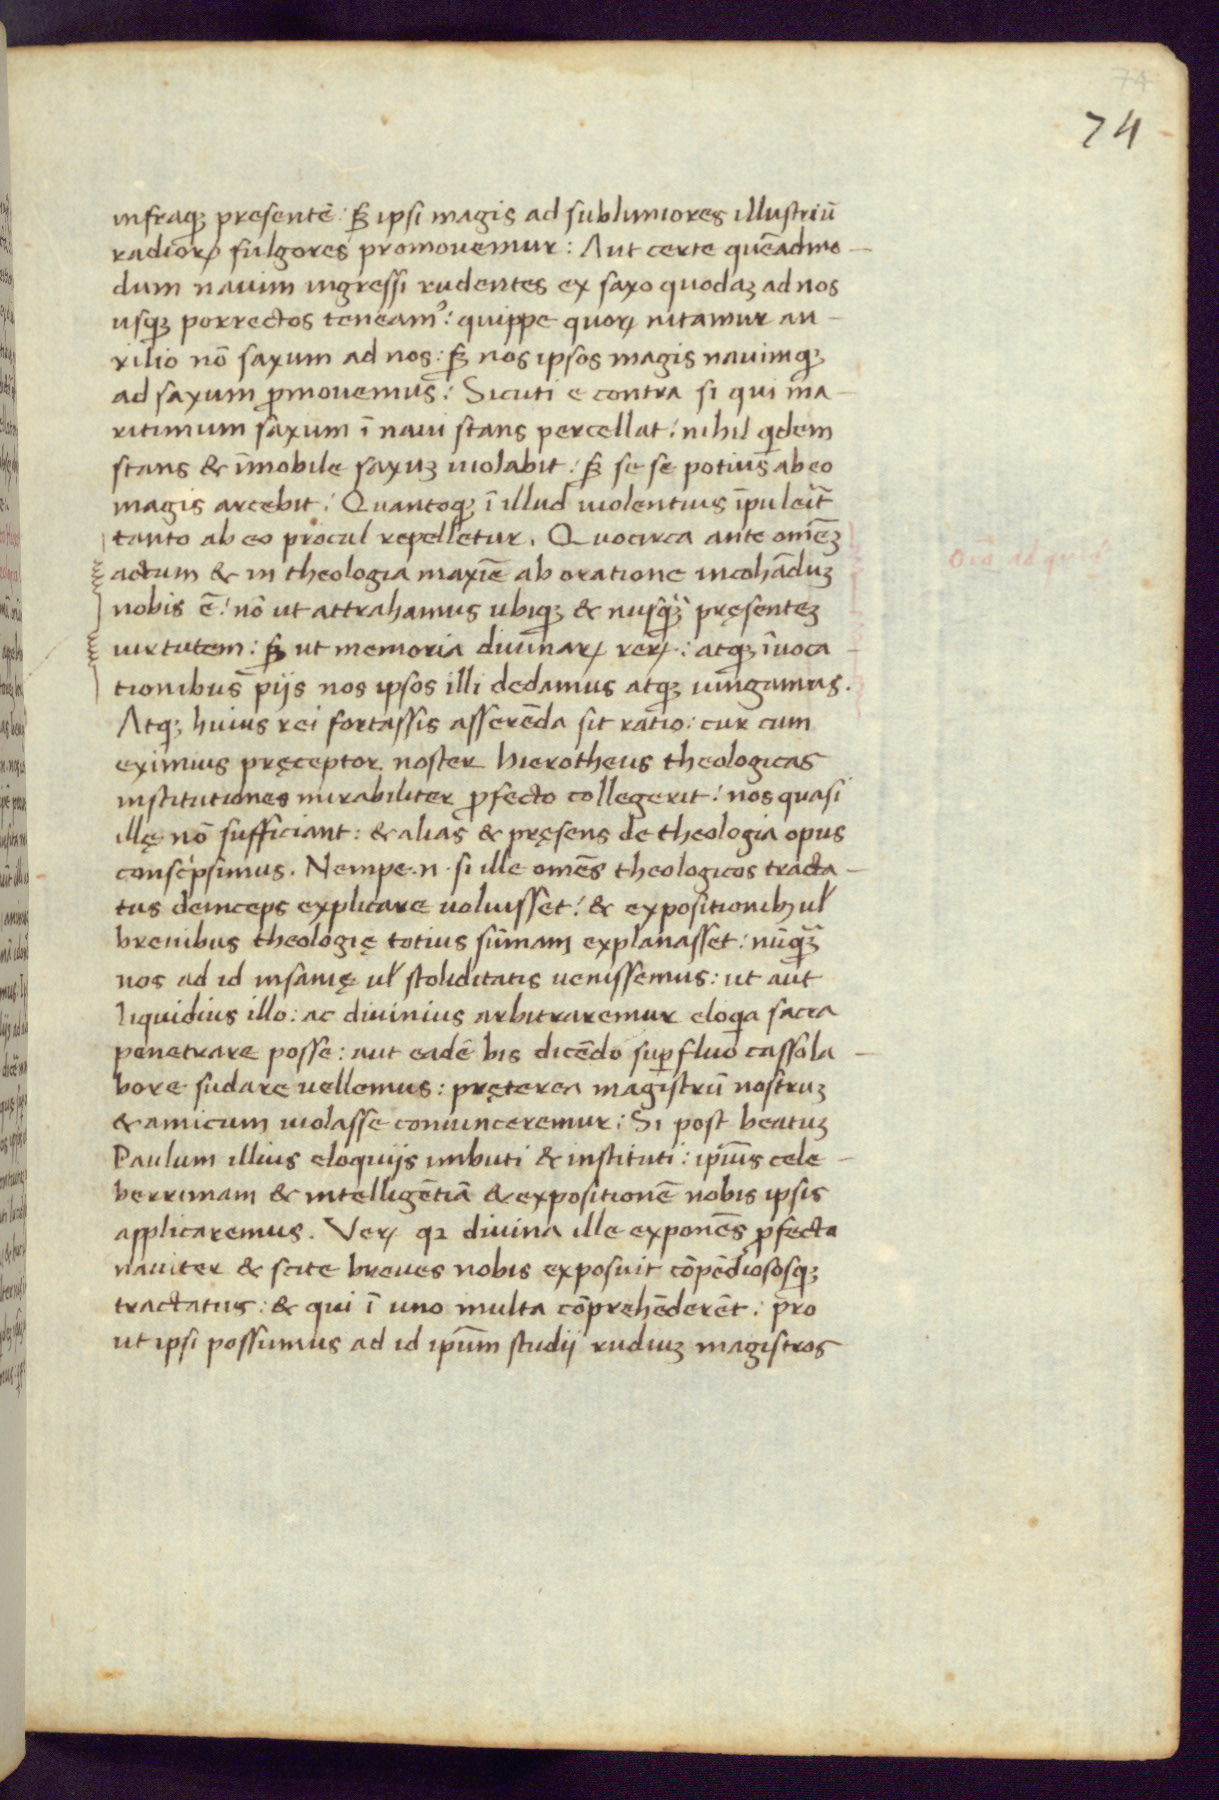 74
74
infraqꝫ presentē: sꝫ ipsi magis ad sublimiores illustriū
radioꝝ fulgores promouemur: Aut certe quēadmo-
dum nauim ingressi rudentes ex saxo quodaꝫ ad nos
usqꝫ porrectos teneamꝰ: quippe quoꝝ nitamur au-
xilio nō saxum ad nos: sꝫ nos ipsos magis nauimqꝫ
ad saxum ꝓmouemus: Sicuti e contra si qui ma-
ritimum saxum ī naui stans percellat: nihil qͥdem
stans & īmobile saxuꝫ uiolabit: sꝫ se se potius ab eo
magis arcebit: Quantoqꝫ ī illud uiolentius īpuleīt
tanto ab eo procul repelletur. Quocirca ante omēꝫ
actum & in theologia maxīe ab oratione incohāduꝫ
nobis ē: nō ut attrahamus ubiqꝫ & nusqꝫ̄ pręsenteꝫ
uirtutem: sꝫ ut memoria diuinaꝝ reꝝ: atqꝫ īuoca-
tionibus pijs nos ipsos illi dedamus atqꝫ iungamus.
Atqꝫ huius rei fortassis asserēda sit ratio: cur cum
eximius pręceptor noster hierotheus theologicas
institutiones mirabiliter ꝓfecto collegerit: nos quasi
illę nō sufficiant: & alias & pręsens de theologia opus
conscͥpsimus. Nempe .n. si ille omēs theologicos tracta-
tus deinceps explicare uoluisset: & expositionibꝫ ul̄
breuibus theologię totius sūmam explanasset: nūqꝫ̄
nos ad id insanię ul̄ stoliditatis uenissemus: ut aut
liquidius illo: ac diuinius arbitraremur eloqͥa sacra
penetrare posse: aut eadē bis dicēdo suꝑfluo cassola-
bore sudare uellemus: pręterea magistrū nostruꝫ
& amicum uiolasse conuinceremur: Si post beatuꝫ
Paulum illius eloquijs imbuti & instituti: ipīus cele-
berrimam & intelligētiā & expositionē nobis ipsis
applicaremus. Veꝝ qꝛ diuina ille exponēs ꝓfecto
nauiter & scite breues nobis exposuit cōpēdiososqꝫ
tractatus: & qui ī uno multa cōprehēderēt: pro
ut ipsi possumus ad id ipūm studij rudiuꝫ magistros
Orō ad